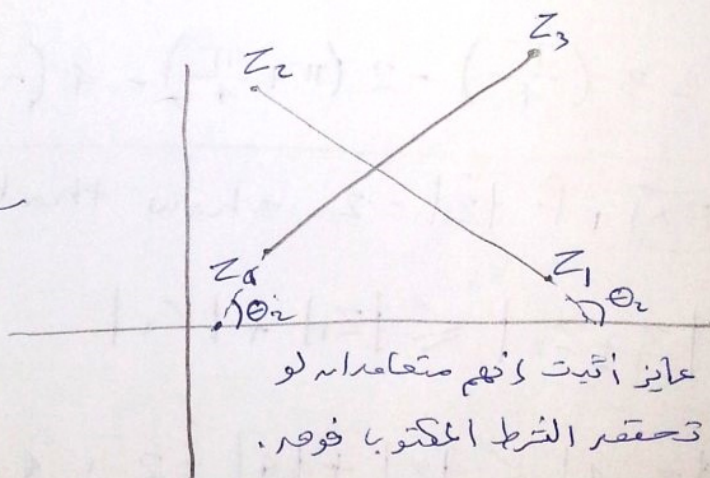 Z₃
Z₂
Z₄
Z₁
θ₂
θ₂
عايز أثبت إنهم متعامدان لو
تحقق الشرط المكتوب فوق.